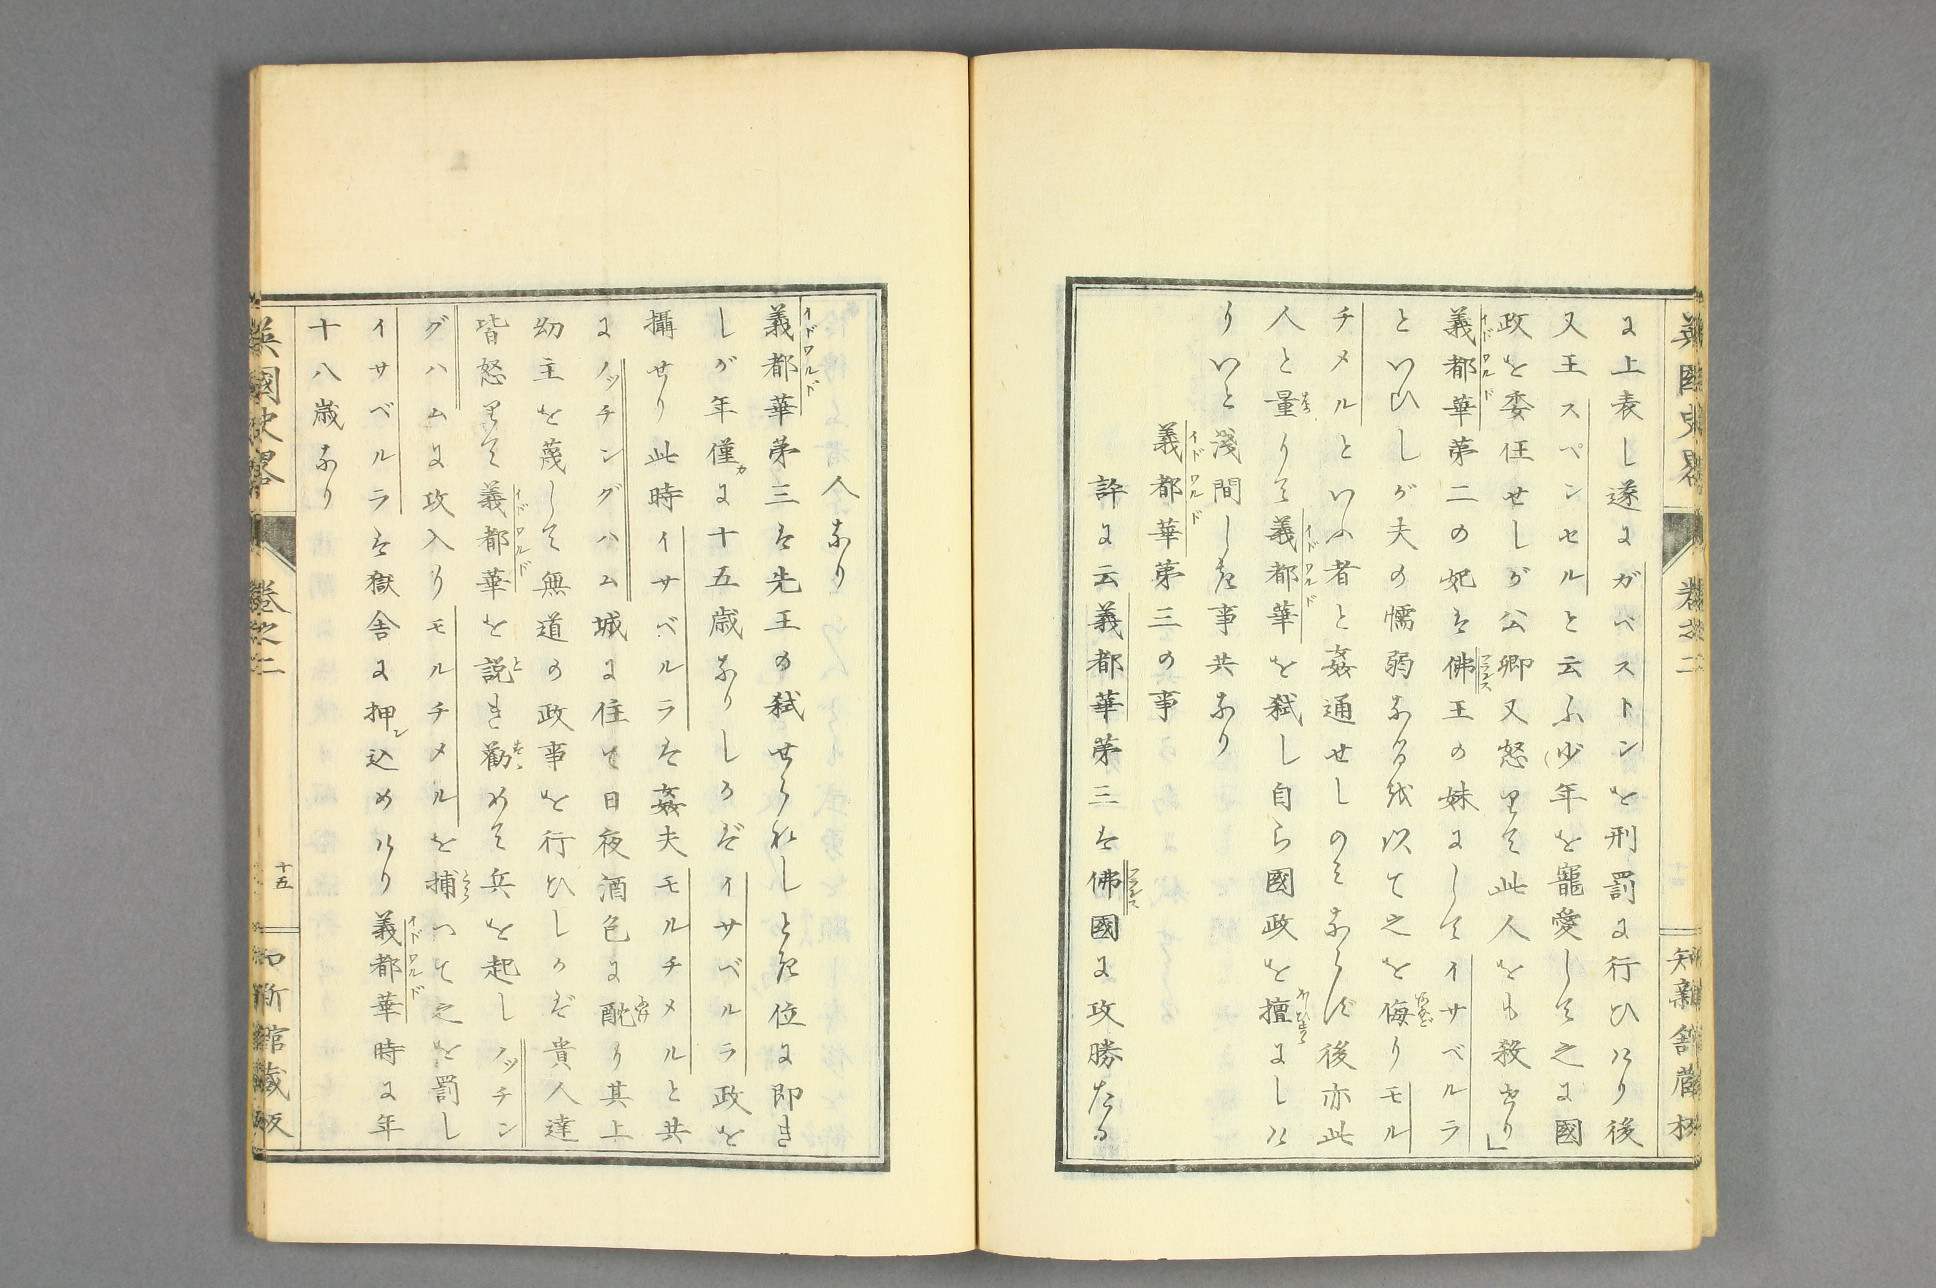 に上表し遂にガベストンを刑罰に行ひけり後
又王スペンセルと云ふ少年を寵愛して之に國
政を委任せしが公卿又怒りて此人をも殺せり」
義都華第二の妃は佛王の妹にしてイサベルラ
といひしが夫の懦弱なるを以て之を侮りモル
チメルといふ者と姦通せしのみならず後亦此
人と量りて義都華を弑し自ら國政を擅にしけ
りいと淺間しき事共なり
義都華第三の事
評に云義都華第三は佛國に攻勝たる
英國史畧
卷之二
知新館藏板
人なり
義都華第三は先王の弑せられしとき位に即き
しが年僅に十五歳なりしかばイサベルラ政を
攝せり此時イサベルラは姦夫モルチメルと共
にノッチングハム城に住て日夜酒色に酖り其上
幼主を蔑して無道の政事を行ひしかば貴人達
皆怒りて義都華を説き勸めて兵を起しノッチン
グハムに攻入りモルチメルを捕へて之を罰し
イサベルラは獄舎に押込めけり義都華時に年
十八歳なり
英國史畧
卷之二
十五
知新館藏板